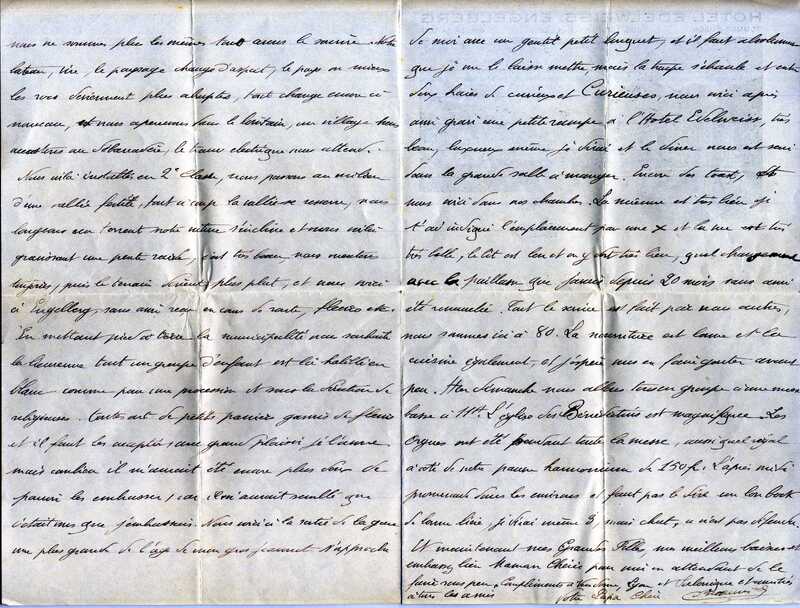 nous ne sommes plus les mêmes tout armes le sourire. Notre
bateau, vire, le paysage change d'aspect, le pays en mieux
les rocs deviennent plus abruptes, tout change encore à
nouveau, et nous apercevons dans le lointain, un village nous
au débarcadère, le train electrique nous attend.
Nous voilà installés en 2e Classe, nous passons au milieu
d'une vallée fertile, tout à coup la vallée se resserre, nous
longeons un torrent notre voiture s'incline et nous voilà
gravissant une pente raide, c'est très beau nous montons
toujours, puis le terrain devient plus plat, et nous voici
à Engelberg, sans avoir reçu en cours de route, fleurs etc.
En mettant pied à terre la municipalité nous souhaite
la bienvenue tout un groupe d'enfant est là habillé en
blanc comme pour une procession et sous la direction de
religieuses. Toutes ont de petits paniers garnis de fleurs
et il faut les acceptés avec grand plaisir je l'avoue
mais combien il m'aurait été encore plus doux de
pouvoir les embrasser, car il m'aurait semblé que
c'était vous que j'embrassais. Nous voici à la sortie de la gare
une plus grande de l'âge de mon gros s'approche
de moi avec un gentil petit bouquet, et il faut absolument
que je me le laisse mettre, mais la troupe s'ébranle et entre
deux haies de curieux et Curieuses, nous voici après
avoir gravi une petite rampe à l'Hotel Edelweiss, très
beau, luxueux même je dirai et le diner nous est servi
dans la grande salle à manger. Encore des toast, et
nous voici dans nos chambres. La mienne est très bien je
t'ai indiqué l'emplacement par une x et la vue est très
très belle, le lit est bon et on y dort très bien, quel changement
avec la paillasse que j'avais depuis 20 mois sans avoir
été remuée. Tout le service est fait par nous autres,
nous sommes ici à 80. La nourriture est bonne et la
cuisine également, et j'espère vous en faire gouter avant
peu. Hier Dimanche nous allons tous en groupe à une messe
basse à 11H. L'église des Bénédictins est magnifique. Les
Orgues ont été pendant toute la messe, aussi quel régal
à coté de notre pauvre harmonium de 150f. L'après midi
promenade dans les environs et faut pas le dire un bon bock
de bonne bière, je dirai même 3, mais chut, ce n'est pas défendu
Et maintenant mes Grandes Filles, mes meilleurs baisers et
embrassez bien Maman Chérie pour moi en attendant de le
faire sous peu. Compliments à Lyon et Salonique et amitiés
à tous les amis Votre Papa Chéri
HOTEL EDELWEISS ENGELBERG